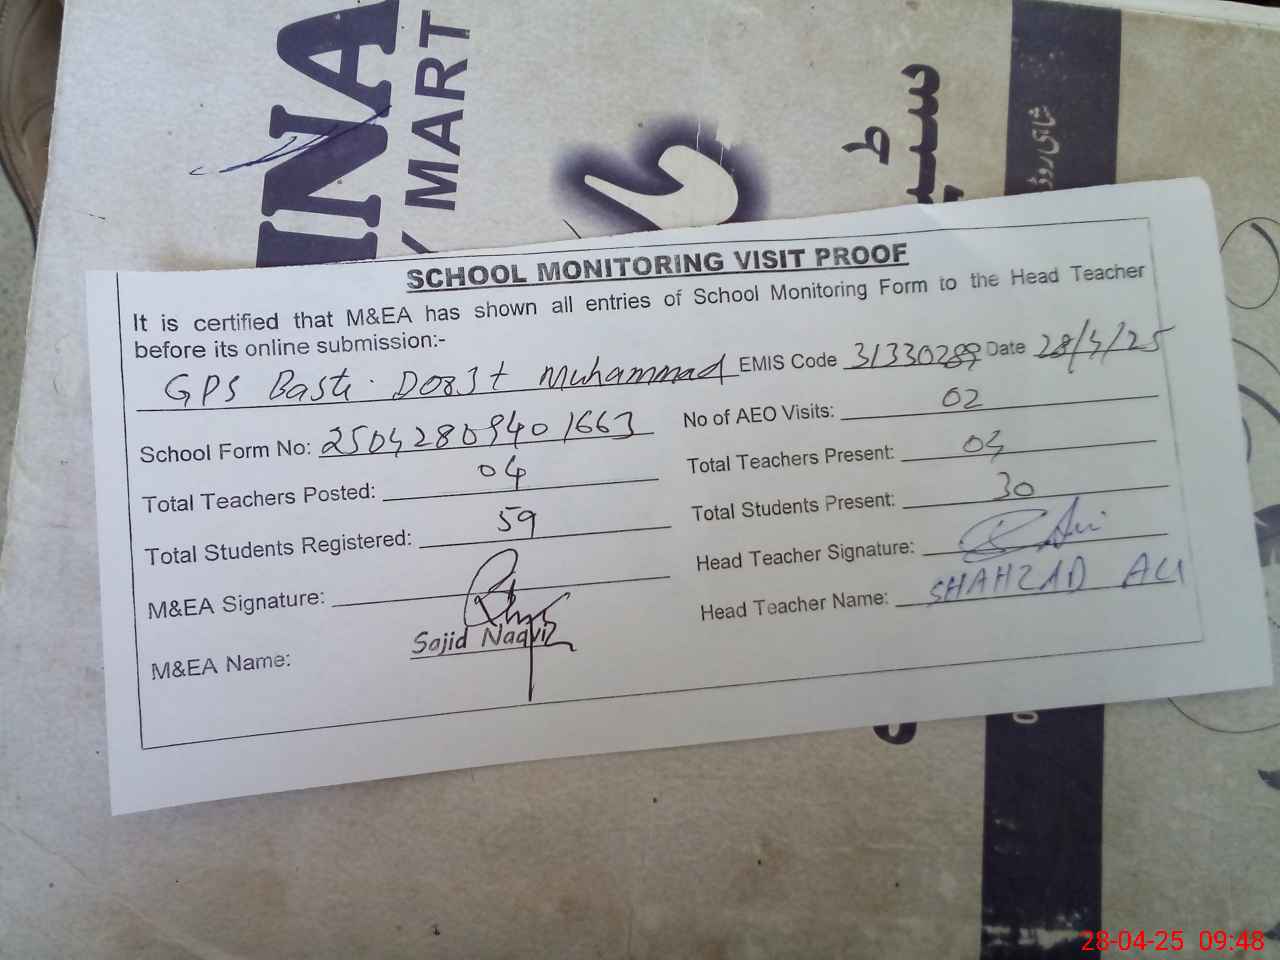 INA
Y MART
SCHOOL MONITORING VISIT PROOF
It is certified that M&EA has shown all entries of School Monitoring Form to the Head Teacher
before its online submission:-
GPS Basti Dost Muhammad EMIS Code 31330289 Date 28/4/25
School Form No: 2504280940 1663 No of AEO Visits: 02
Total Teachers Posted: 04 Total Teachers Present: 04
Total Students Registered: 59 Total Students Present: 30
M&EA Signature: Head Teacher Signature:
M&EA Name: Sajid Naqvi Head Teacher Name: SHAHZAD ALI
28-04-25 09:48